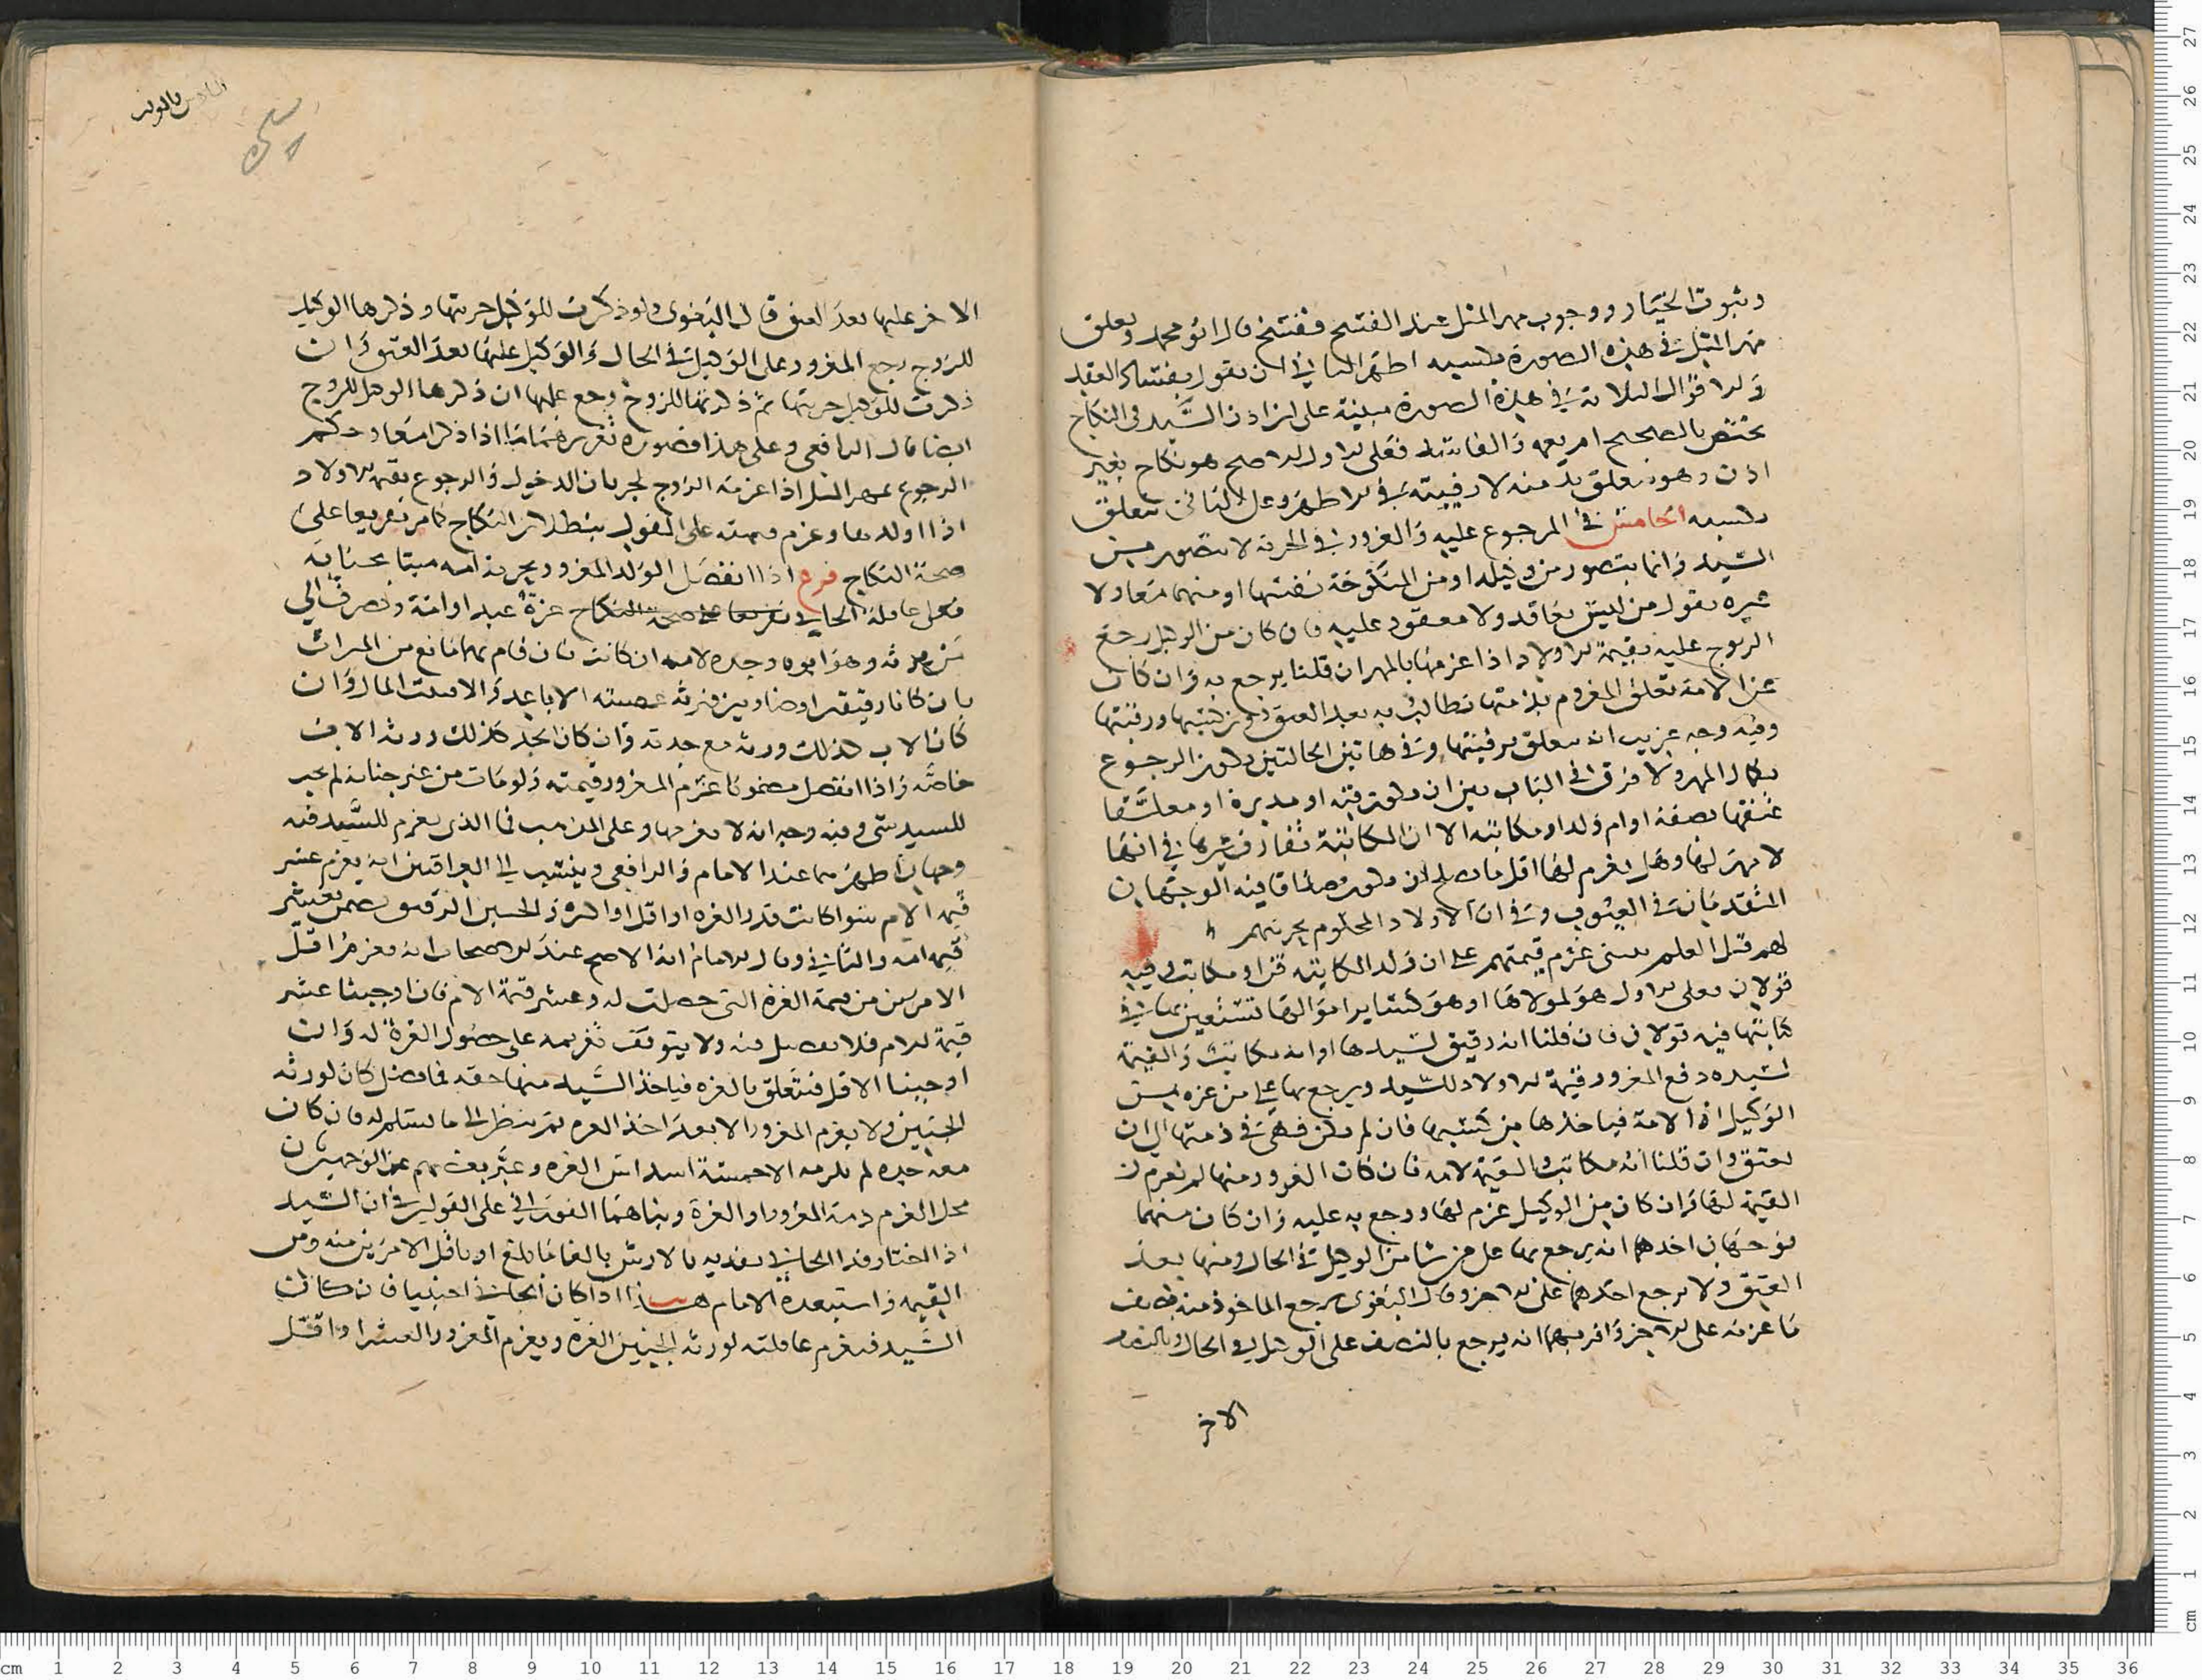 وثبوت الخيار ووجوب مهر المثل عند الفسخ ففسخ قال ابو محمد وتعلق
مهر المثل في هذه الصورة بكسبه اظهر الثاني ان نقول بفساد العقد
والاقوال الثلاثة في هذه الصورة مبنية على ان اذن السيد في النكاح
يختص بالصحيح ام يعمه والفاسد فعلى الاول الاصح هو نكاح بغير
اذن وهو يتعلق بذمته لا رقبته في الاظهر وعلى الثاني يتعلق
بكسبه الخامس في المرجوع عليه والغرور في الحرية لا يتصور من
السيد وانما يتصور من وكيله او من المنكوحة نفسها او منهما معا ولا
عبرة بقول من ليس بعاقد ولا معقود عليه فان كان من الوكيل رجع
الزوج عليه بقيمة الاولاد اذا غرمها بالمهر ان قلنا يرجع به وان كان
من الامة تعلق المغروم بذمتها تطالب به بعد العتق دون كسبها ورقبتها
وفيه وجه غريب انه يتعلق برقبتها وفي هاتين الحالتين يكون الرجوع
بكمال المهر ولا فرق في الباب بين ان تكون قنة او مدبرة او معلقا
عتقها بصفة او ام ولد او مكاتبة الا ان المكاتبة تفارق غيرها في انها
لا مهر لها وهل يغرم لها اقل ما يصلح ان يكون صداقا فيه الوجهان
المتقدمان في العيوب وفي ان الاولاد المحكوم بحريتهم
لهم قبل العلم يبنى غرم قيمتهم على ان ولد المكاتبة قن او مكاتب وفيه
قولان فعلى الاول هو لمولاها او هو كسائر اموالها تستعين بها في
كتابتها فيه قولان فان قلنا انه رقيق لسيدها او انه مكاتب والقيمة
لسيده دفع المغرور قيمة الاولاد للسيد ويرجع بها على من غره من
الوكيل او الامة فياخذها من كسبها فان لم يكن فهي في ذمتها الى ان
تعتق وان قلنا انه مكاتب والقيمة لامه فان كان الغرور منها لم يغرم
القيمة لها وان كان من الوكيل غرم لها ورجع به عليه وان كان منهما
فوجهان احدهما انه يرجع بها على من شا من الوكيل في الحال ومنها بعد
العتق ولا يرجع احدهما على الاخر وقال البغوي يرجع الماخوذ منه بنصف
ما غرمه على الاخر واقربهما انه يرجع بالنصف على الوكيل في الحال وبالنصف
الاخر
الاخر عليها بعد العتق قال البغوي ولو ذكرت للوكيل حريتها وذكرها الوكيل
للزوج رجع المغرور على الوكيل في الحال والوكيل عليها بعد العتق وان
ذكرت للوكيل حريتها ثم ذكرتها للزوج رجع عليها ان ذكرها الوكيل للزوج
ايضا قال الرافعي وعلى هذا فصورة تغريرهما ما اذا ذكرا معا وحكم
الرجوع بمهر المثل اذا غرمه الزوج لجريان الدخول والرجوع بقيمة الاولاد
اذا اولدها وغرم قيمته على القول ببطلان النكاح كما مر تفريعا على
صحة النكاح فرع اذا انفصل الولد المغرور بحرية امه ميتا بجناية
فعلى عاقلة الجاني تفريعا على صحة النكاح غرة عبد او امة وتصرف الى
من يرثه وهو ابوه وجدته لامه ان كانت فان قام بهما مانع من الميراث
بان كانا رقيقين او ضاربين ورثه عصبته الاباعد والا فبيت المال وان
كان الاب كذلك ورثه مع جدته وان كان الجد كذلك ورثه الاب
خاصة واذا انفصل مضمونا غرم المغرور قيمته ولو مات من غير جناية لم يجب
للسيد شي وفيه وجه انه لا يغرمها وعلى المذهب فما الذي يغرم للسيد فيه
وجهان اظهرهما عند الامام والرافعي وينسب الى العراقيين انه يغرم عشر
قيمة الام سوا كانت قدر الغرة او اقل او اكثر والجنين الرقيق يضمن بعشر
قيمة امه والثاني وقال الامام انه الاصح عند الاصحاب انه يغرم اقل
الامرين من قيمة الغرة التي حصلت له وعشر قيمة الام فان اوجبنا عشر
قيمة الام فلا تفصيل فيه ولا يتوقف تغريمه على حصول الغرة له وان
اوجبنا الاقل فيتعلق بالغرة فياخذ السيد منها حقه فما فضل كان لورثة
الجنين ولا يغرم المغرور الا بعد اخذ الغرة ثم ينظر الى ما يستلم له فان كان
معه جدة لم يلزمه الا خمسة اسداس الغرة وعبر بعضهم عن الوجهين بان
محل الغرم ذمة المغرور او الغرة وبناهما الفوراني على القولين في ان السيد
اذا اختار فدا الجاني يفديه بالارش بالغا ما بلغ او باقل الامرين منه ومن
القيمة واستبعده الامام هذا اذا كان الجاني اجنبيا فان كان
السيد فيغرم عاقلته لورثة الجنين الغرة ويغرم المغرور العشر او اقل